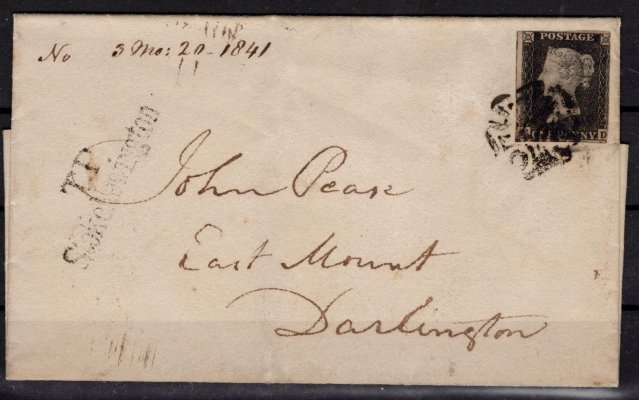 No 3 Mo: 20 - 1841
POSTAGE
ONE PENNY
D
T.P
Stoke Newington
John Pease
East Mount
Darlington